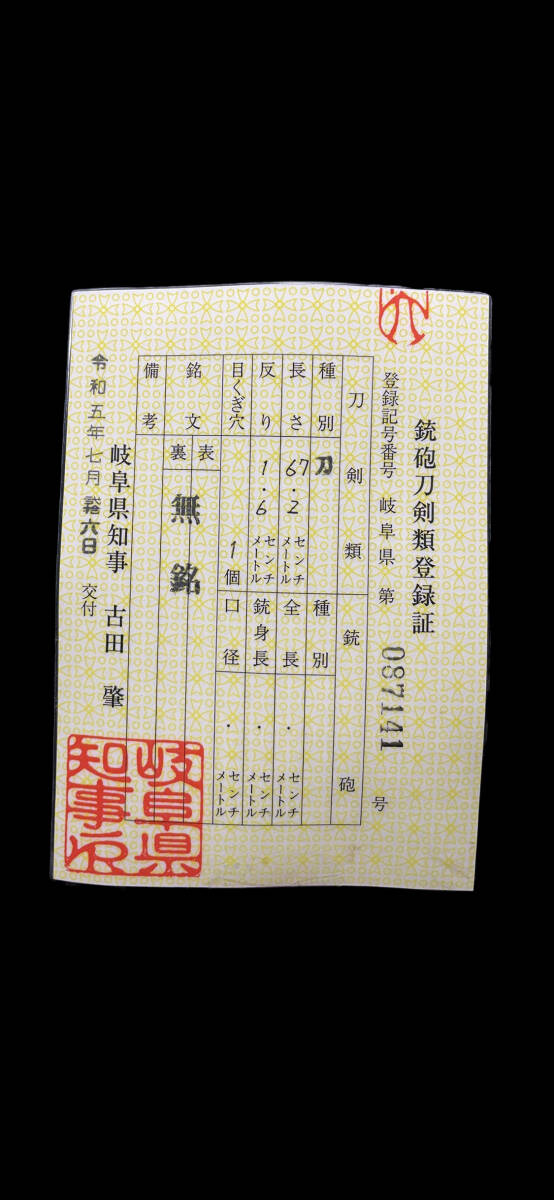 銃砲刀剣類登録証
登録記号番号 岐阜県 第 087141 号
刀剣類
種別 刀
長さ 67.2 センチメートル
反り 1.6 センチメートル
目くぎ穴 1個
銘文
表
裏
無銘
備考
銃砲
種別
全長 . センチメートル
銃身長 . センチメートル
口径 . センチメートル
岐阜県知事 古田 肇
令和五年七月 六日 交付
岐阜県
知事